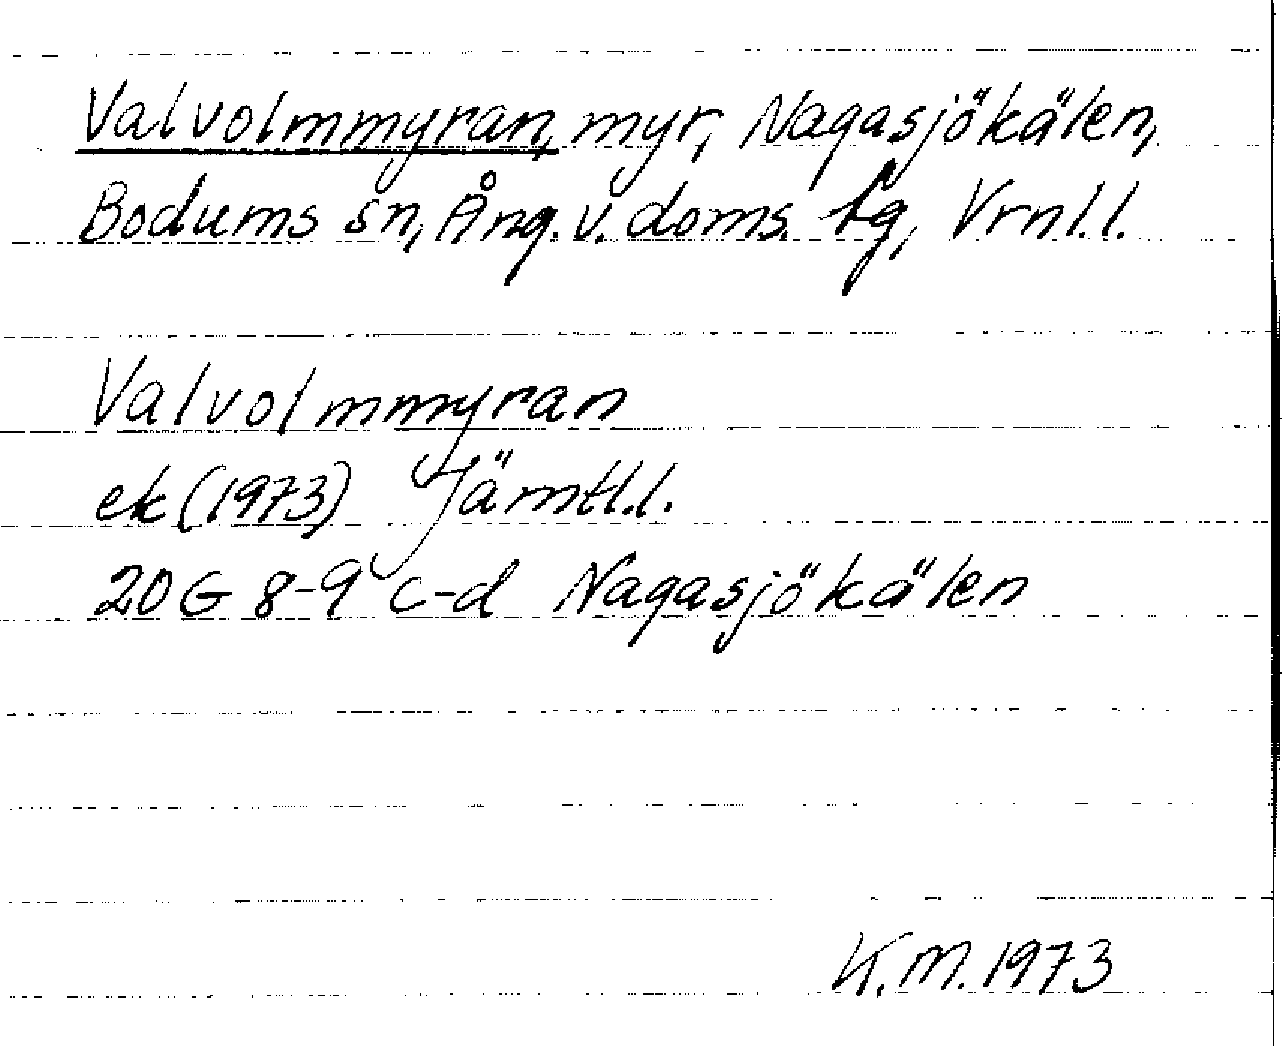 Valvolmmyran, myr, Nagasjökälen,
Bodums sn, Ång. v. doms. fg, Vrnl.l.
Valvolmmyran
ek (1973) Jämtl.l.
20G 8-9 c-d Nagasjökälen
K.M. 1973